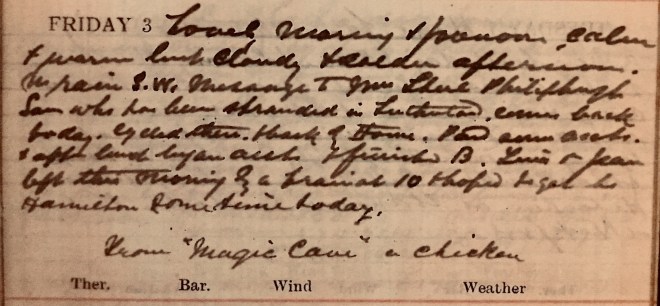 FRIDAY 3 Lovely morning & forenoon, calm
& warm but cloudy & colder afternoon.
no rain S.W. Message to Mrs Philiphaugh
Sam who has been stranded in comes back
today. Cycled there & back & home. Paid some accts.
& after lunch began accts & finished B. & Jean
left this morning by a train at 10 & hoped to get to
Hamilton some time today.
From "Magic Cave" a chicken
Ther. Bar. Wind Weather